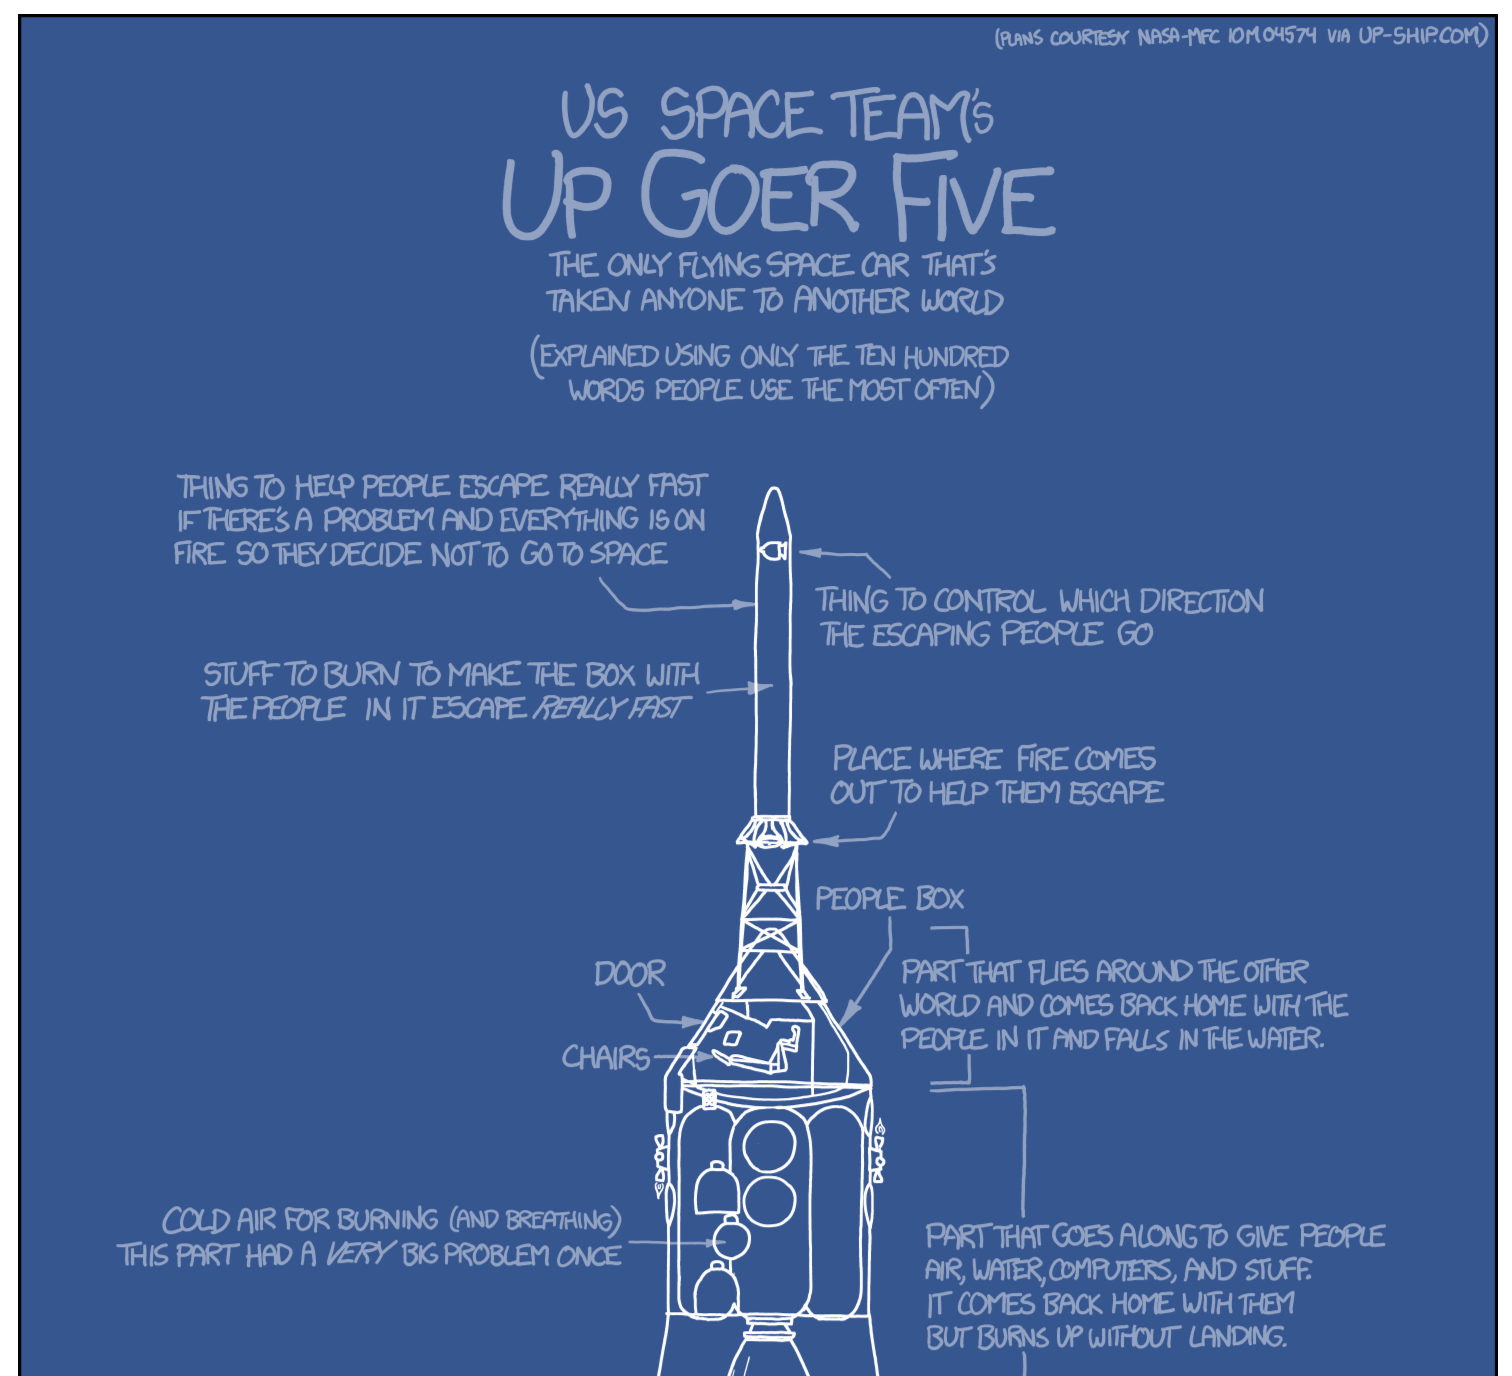 (PLANS COURTESY NASA-MFC 10M04574 VIA UP-SHIP.COM)
US SPACE TEAM'S
UP GOER FIVE
THE ONLY FLYING SPACE CAR THAT'S
TAKEN ANYONE TO ANOTHER WORLD
(EXPLAINED USING ONLY THE TEN HUNDRED
WORDS PEOPLE USE THE MOST OFTEN)
THING TO HELP PEOPLE ESCAPE REALLY FAST
IF THERE'S A PROBLEM AND EVERYTHING IS ON
FIRE SO THEY DECIDE NOT TO GO TO SPACE
THING TO CONTROL WHICH DIRECTION
THE ESCAPING PEOPLE GO
STUFF TO BURN TO MAKE THE BOX WITH
THE PEOPLE IN IT ESCAPE REALLY FAST
PLACE WHERE FIRE COMES
OUT TO HELP THEM ESCAPE
PEOPLE BOX
DOOR
PART THAT FLIES AROUND THE OTHER
WORLD AND COMES BACK HOME WITH THE
PEOPLE IN IT AND FALLS IN THE WATER.
CHAIRS
COLD AIR FOR BURNING (AND BREATHING)
THIS PART HAD A VERY BIG PROBLEM ONCE
PART THAT GOES ALONG TO GIVE PEOPLE
AIR, WATER, COMPUTERS, AND STUFF.
IT COMES BACK HOME WITH THEM
BUT BURNS UP WITHOUT LANDING.